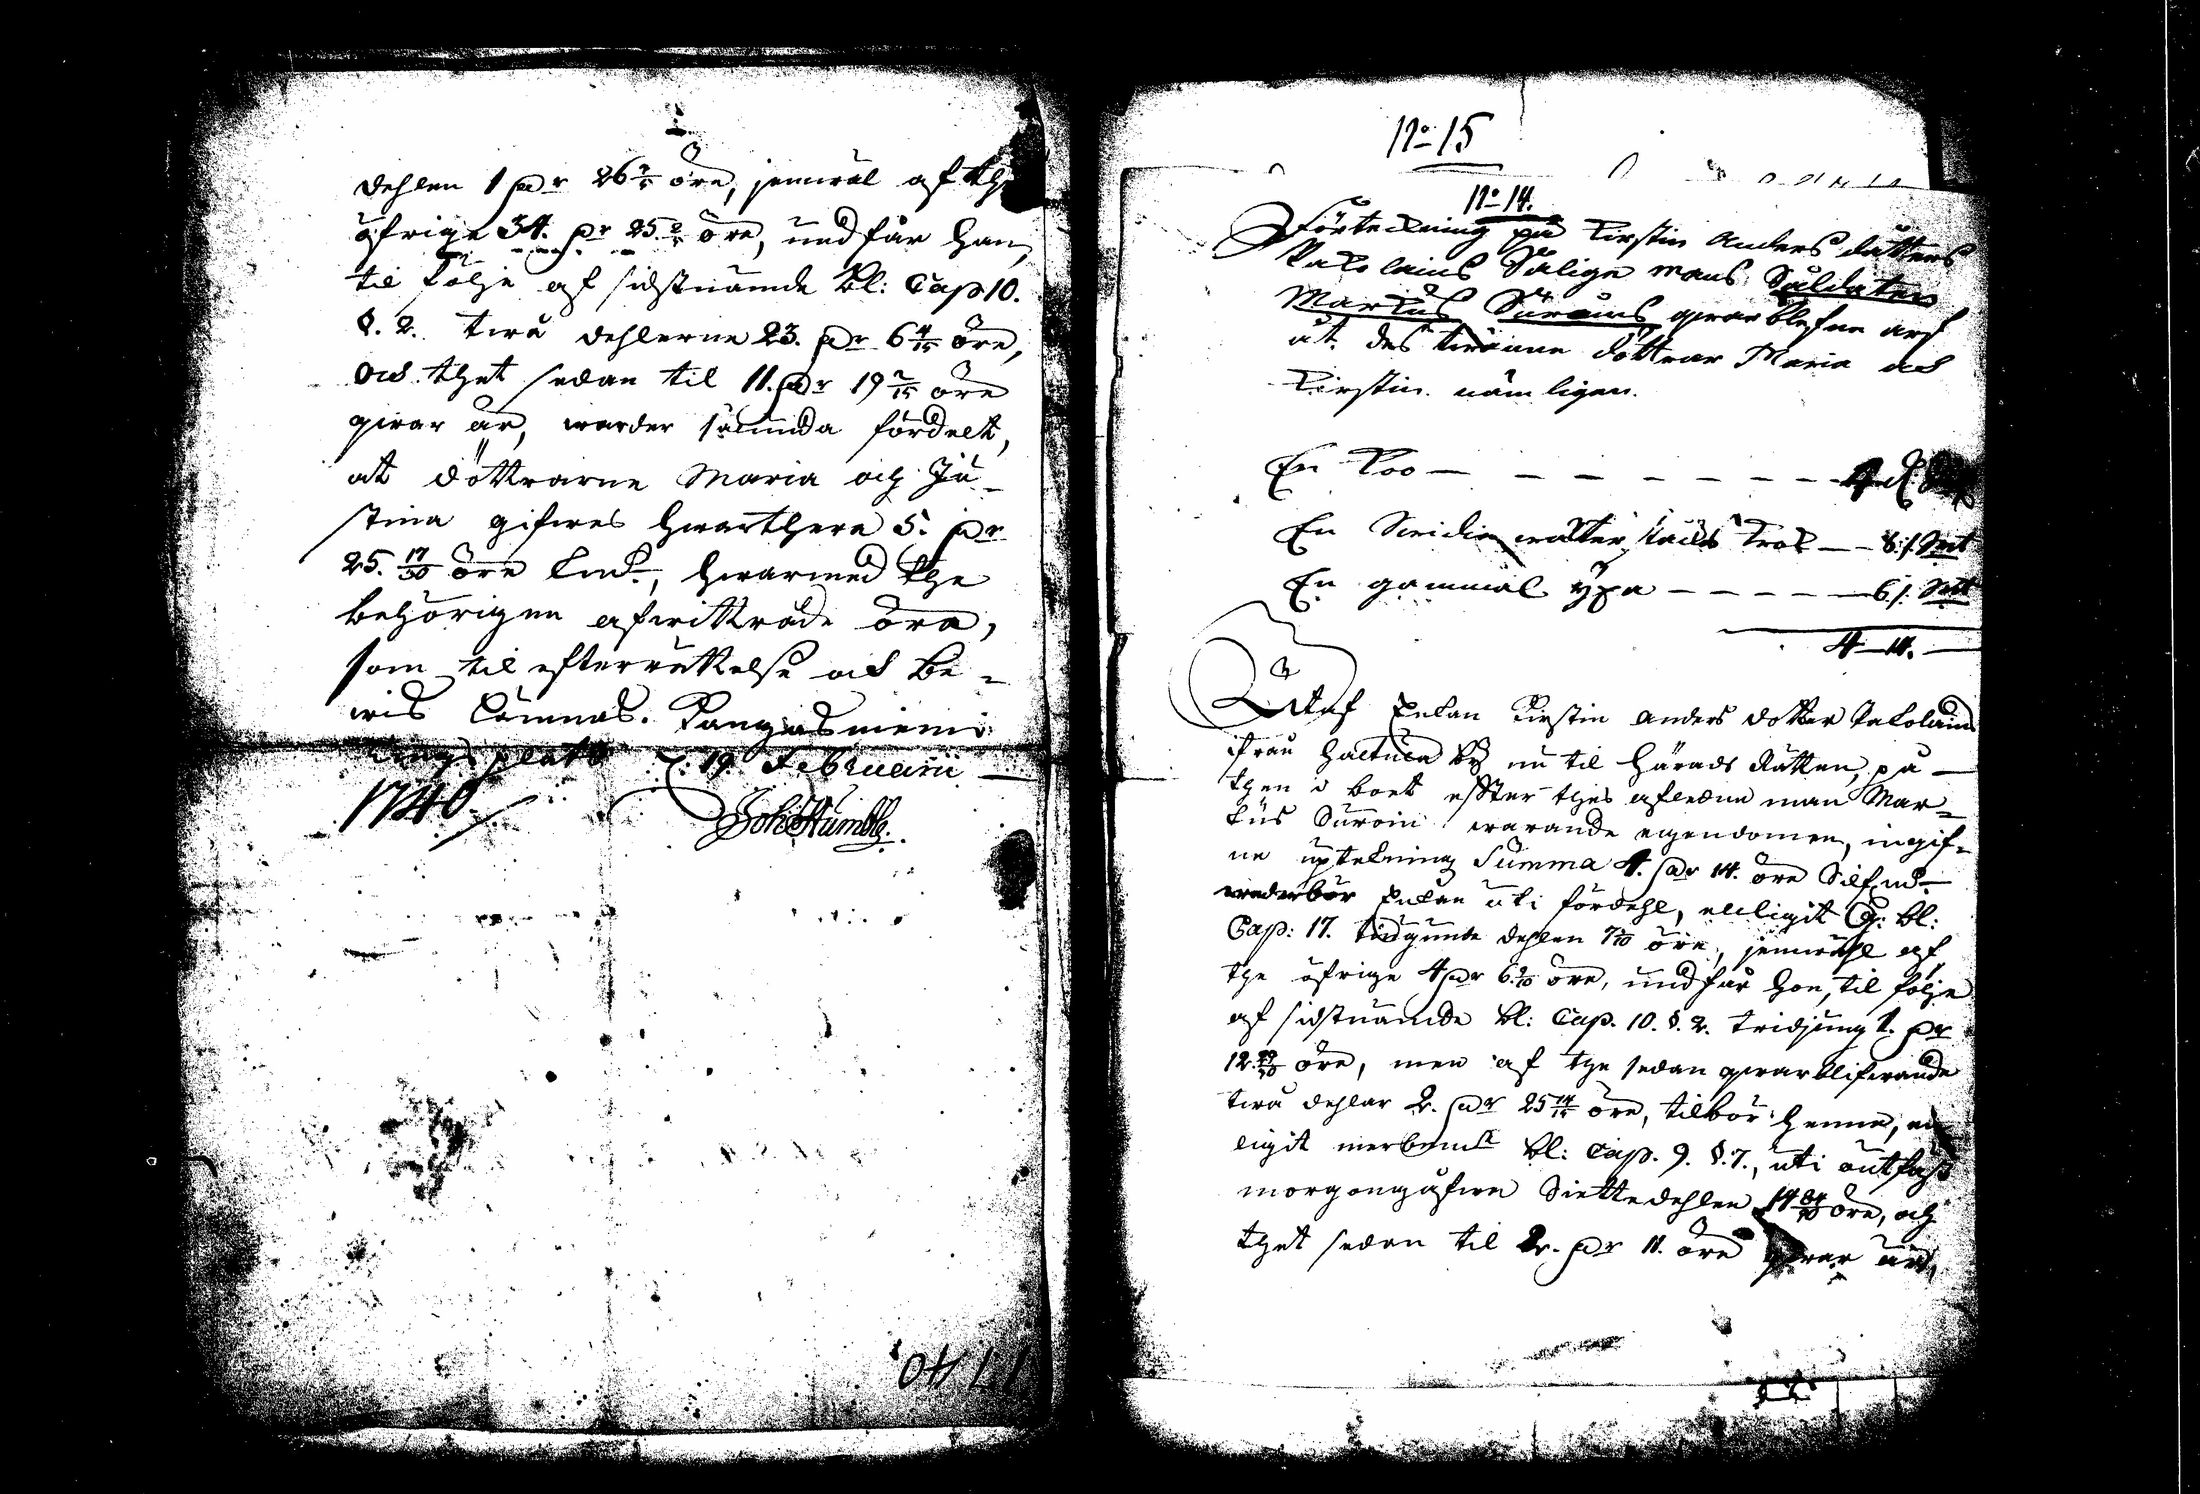 dehlen 1 dr 26 2/5 öre, jemväl af the
öfrige 34. dr 25. 2/5 öre, undfår han,
til följe af sidstnämde bl: Cap 10.
§. 2. twå dehlerne 23. dr 6 4/15 öre,
och thet sedan til 11. dr 19 2/15 öre
qwar är, warder sålunda fördelt,
at döttrarne Maria och Ju-
stina gifwes hwarthera 5. dr
25. 17/30 öre Smt, hwarmed the
behörigen afwittrade äro,
som til efterrättelse och be-
wis lämnas. Kangasniemi
tingsplats d: 19 Februarii
1740
Joh: Humble.
1740
No 15
No 14.
Förteckning på Kirstin Anders dotters
Pakolains Salige mans Soldaten
Markus Suroins qwarblefne arf
åt des twänne döttrar Maria och
Kirstin nämligen.
En Koo
En 8 /. Smt
En gammal yxa 6 /. Smt
4 14.
Utaf Enkan Kirstin Anders dotter Pakolain
ifrån by nu til Härads Rätten, på
then i boet effter thes afledne man Mar-
kus Suroin warande egendomen, ingif-
ne uptekning Summa 4. dr 14. öre Silfmt
wederbör Enkan uti fördehl, enligit G: bl:
Cap: 17. tiugunde dehlen 7 1/10 öre, jemwähl af
the öfrige 4 dr 6 9/10 öre, undfår hon, til följe
af sidstnämde bl: Cap. 10. §. 2. tridjung 1. dr
12. 29/30 öre, men af the sedan qwarblifwande
twå dehlar 2. dr 25 14/15 öre, tilbör henne, en
ligit merbemte bl: Cap. 9. §. 7., uti
morgongåfwa Siettedehlen 14 öre, och
thet sedan til 2. dr 11. öre qwar är,